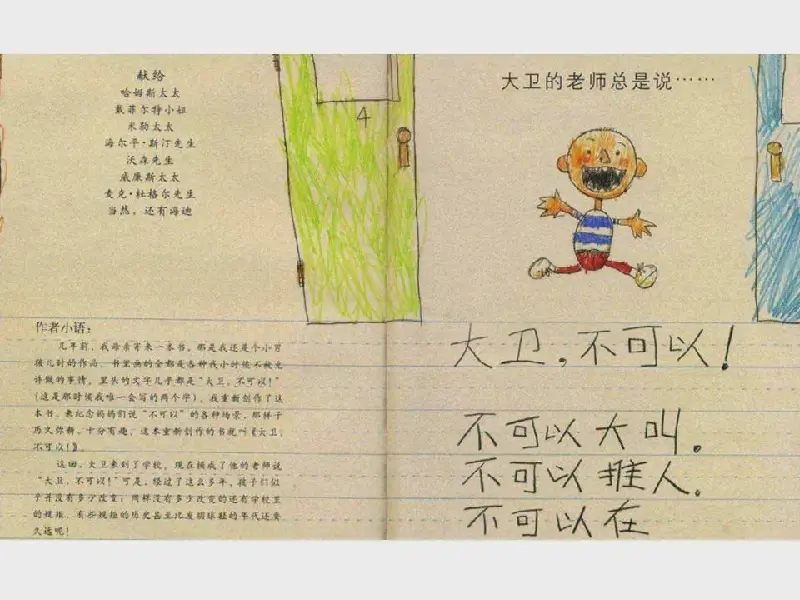 献给
哈姆斯太太
戴菲尔特小姐
米勒太太
海尔平·斯汀先生
沃森先生
威廉斯太太
麦克·杜格尔先生
当然，还有海迪
作者小语：
几年前，我母亲寄来一本书。那是我还是个小男
孩儿时的作品，书里画的全都是各种我小时候不被允
许做的事情，里头的文字几乎都是“大卫，不可以！”
（这是那时候我唯一会写的两个字）。我重新创作了这
本书，来纪念妈妈们说“不可以”的各种场景，那样子
历久弥新，十分有趣。这本重新创作的书就叫《大卫，
不可以！》。
这回，大卫来到了学校，现在换成了他的老师说
“大卫，不可以！”可是，经过了这么多年，孩子们似
乎并没有多少改变；同样没有多少改变的还有学校里
的规矩，有些规矩的历史甚至比发明球鞋的年代还要
久远呢！
4
大卫的老师总是说……
大卫，不可以！
不可以大叫。
不可以推人。
不可以在